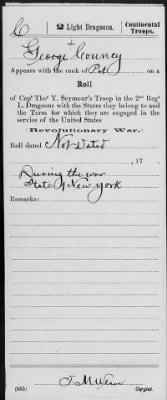 C
2 Light Dragoons.
Continental Troops.
George Councy
Appears with the rank of Pvt on a
Roll
of Capt Thos Y. Seymour's Troop in the 2nd Regt
L. Dragoons with the States they belong to and
the Term for which they are engaged in the
service of the United States
Revolutionary War.
Roll dated Not Dated
, 17 .
During the war
State of New York
Remarks:
(655)
Copyist.